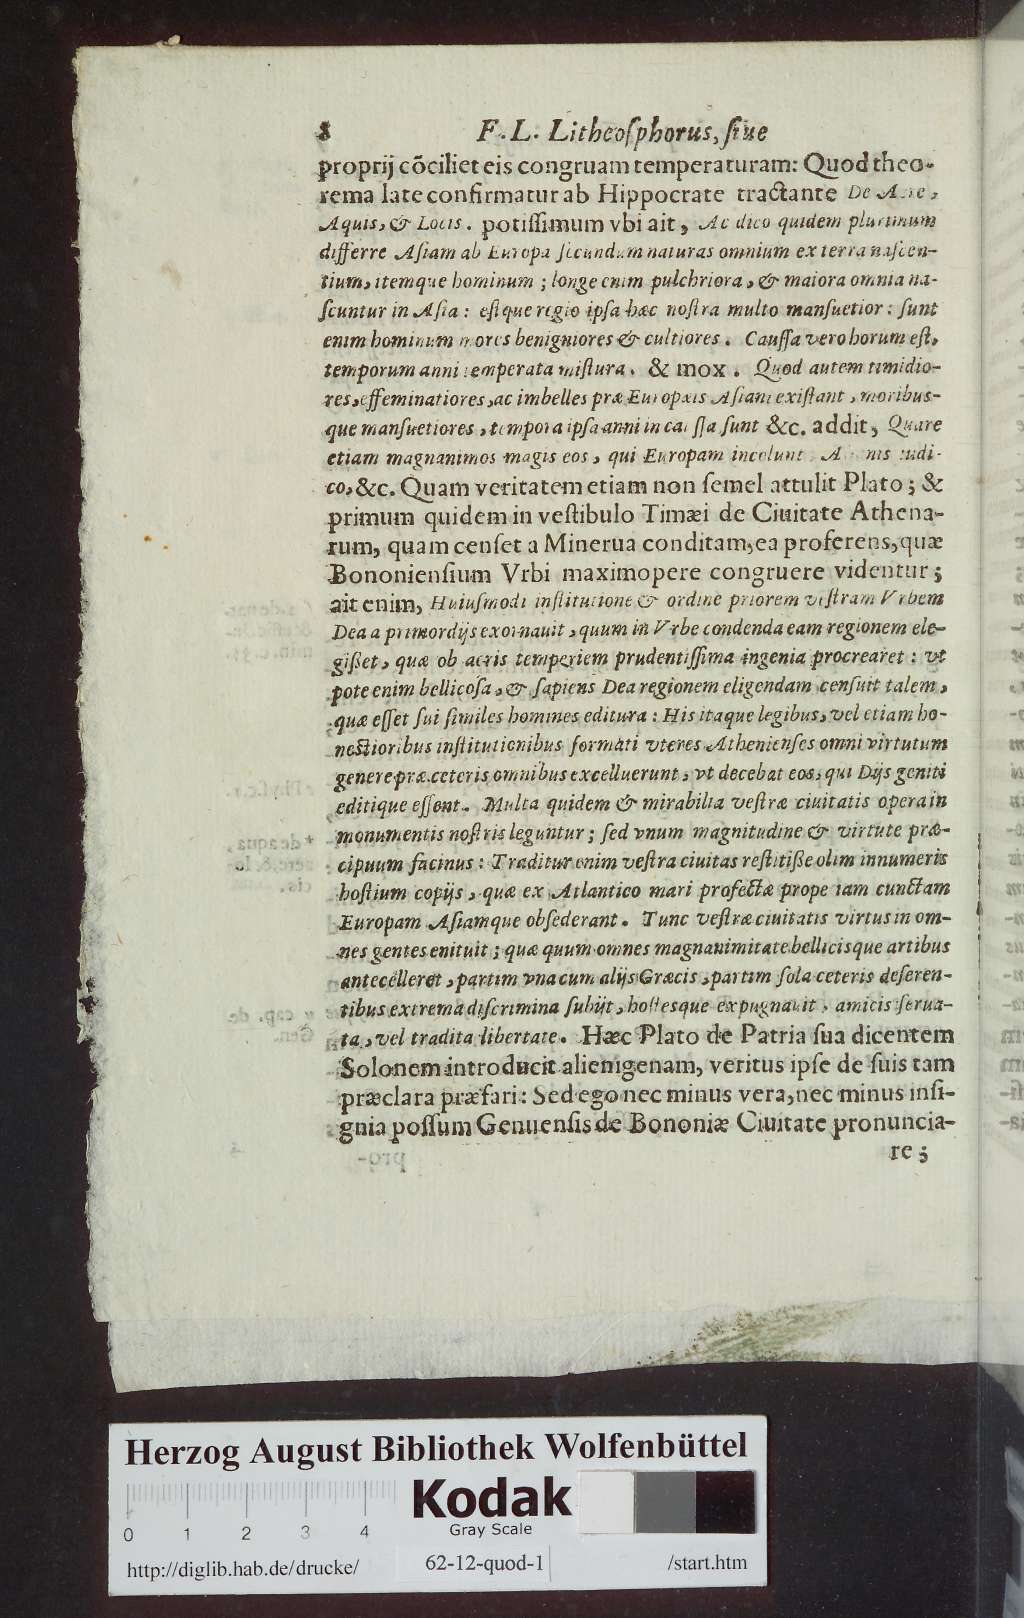 8 F. L. Litheoſphorus, ſiue
proprij cōciliet eis congruam temperaturam: Quod theo-
rema late confirmatur ab Hippocrate tractante De Aere,
Aquis, & Locis. potiſſimum vbi ait, Ac dico quidem plurimum
differre Aſiam ab Europa ſecundum naturas omnium ex terra naſcen-
tium, itemque hominum; longe enim pulchriora, & maiora omnia na-
ſcuntur in Aſia: eſtque regio ipſa hæc noſtra multo manſuetior: ſunt
enim hominum mores benigniores & cultiores. Cauſſa vero horum eſt,
temporum anni temperata miſtura. & mox. Quod autem timidio-
res, effeminatiores, ac imbelles præ Europæis Aſiani exiſtant, moribus-
que manſuetiores, tempora ipſa anni in cauſſa ſunt &c. addit, Quare
etiam magnanimos magis eos, qui Europam incolunt iudi-
co, &c. Quam veritatem etiam non ſemel attulit Plato; &
primum quidem in veſtibulo Timæi de Ciuitate Athena-
rum, quam cenſet a Minerua conditam, ea proferens, quæ
Bononienſium Vrbi maximopere congruere videntur;
ait enim, Huiuſmodi inſtitutione & ordine priorem veſtram Vrbem
Dea a primordijs exornauit, quum in Vrbe condenda eam regionem ele-
gißet, quæ ob aeris temperiem prudentiſſima ingenia procrearet: vt
pote enim bellicoſa, & ſapiens Dea regionem eligendam cenſuit talem,
quæ eſſet ſui ſimiles homines editura: His itaque legibus, vel etiam ho-
neſtioribus inſtitutionibus formati vteres Athenienſes omni virtutum
genere præ ceteris omnibus excelluerunt, vt decebat eos, qui Dijs geniti
editique eſſent. Multa quidem & mirabilia veſtræ ciuitatis opera in
monumentis noſtris leguntur; ſed vnum magnitudine & virtute præ-
cipuum facinus: Traditur enim veſtra ciuitas reſtitiße olim innumeris
hoſtium copijs, quæ ex Atlantico mari profectæ prope iam cunctam
Europam Aſiamque obſederant. Tunc veſtræ ciuitatis virtus in om-
nes gentes enituit; quæ quum omnes magnanimitate bellicisque artibus
antecelleret, partim vna cum alijs Græcis, partim ſola ceteris deſeren-
tibus extrema diſcrimina ſubijt, hoſtesque expugnauit, amicis ſerua-
ta, vel tradita libertate. Hæc Plato de Patria ſua dicentem
Solonem introducit alienigenam, veritus ipſe de ſuis tam
præclara præfari: Sed ego nec minus vera, nec minus inſi-
gnia poſſum Genuenſis de Bononiæ Ciuitate pronuncia-
re;
Herzog August Bibliothek Wolfenbüttel
Kodak
Gray Scale
0 1 2 3 4
http://diglib.hab.de/drucke/ 62-12-quod-1 /start.htm